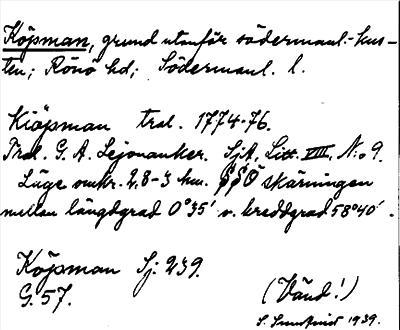 Köpman, grund utanför södermanl.-kus-
ten; Rönö hd; Södermanl. l.
Kiöpman tral. 1774-76.
Tral. G. A. Lejonanker. SjA, Litt. VIII, N:o 9.
Läge omkr. 2,8-3 km. SSÖ skärningen
mellan längdgrad 0°35' o. breddgrad 58°40'.
Köpman Sj. 239.
G. 57.
(Vänd!)
1939.